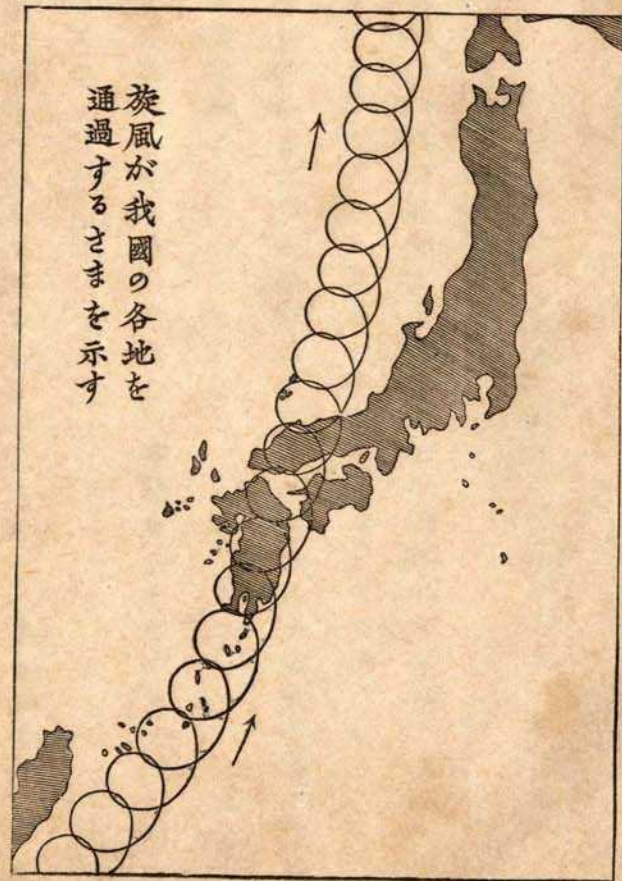 旋風が我國の各地を
通過するさまを示す